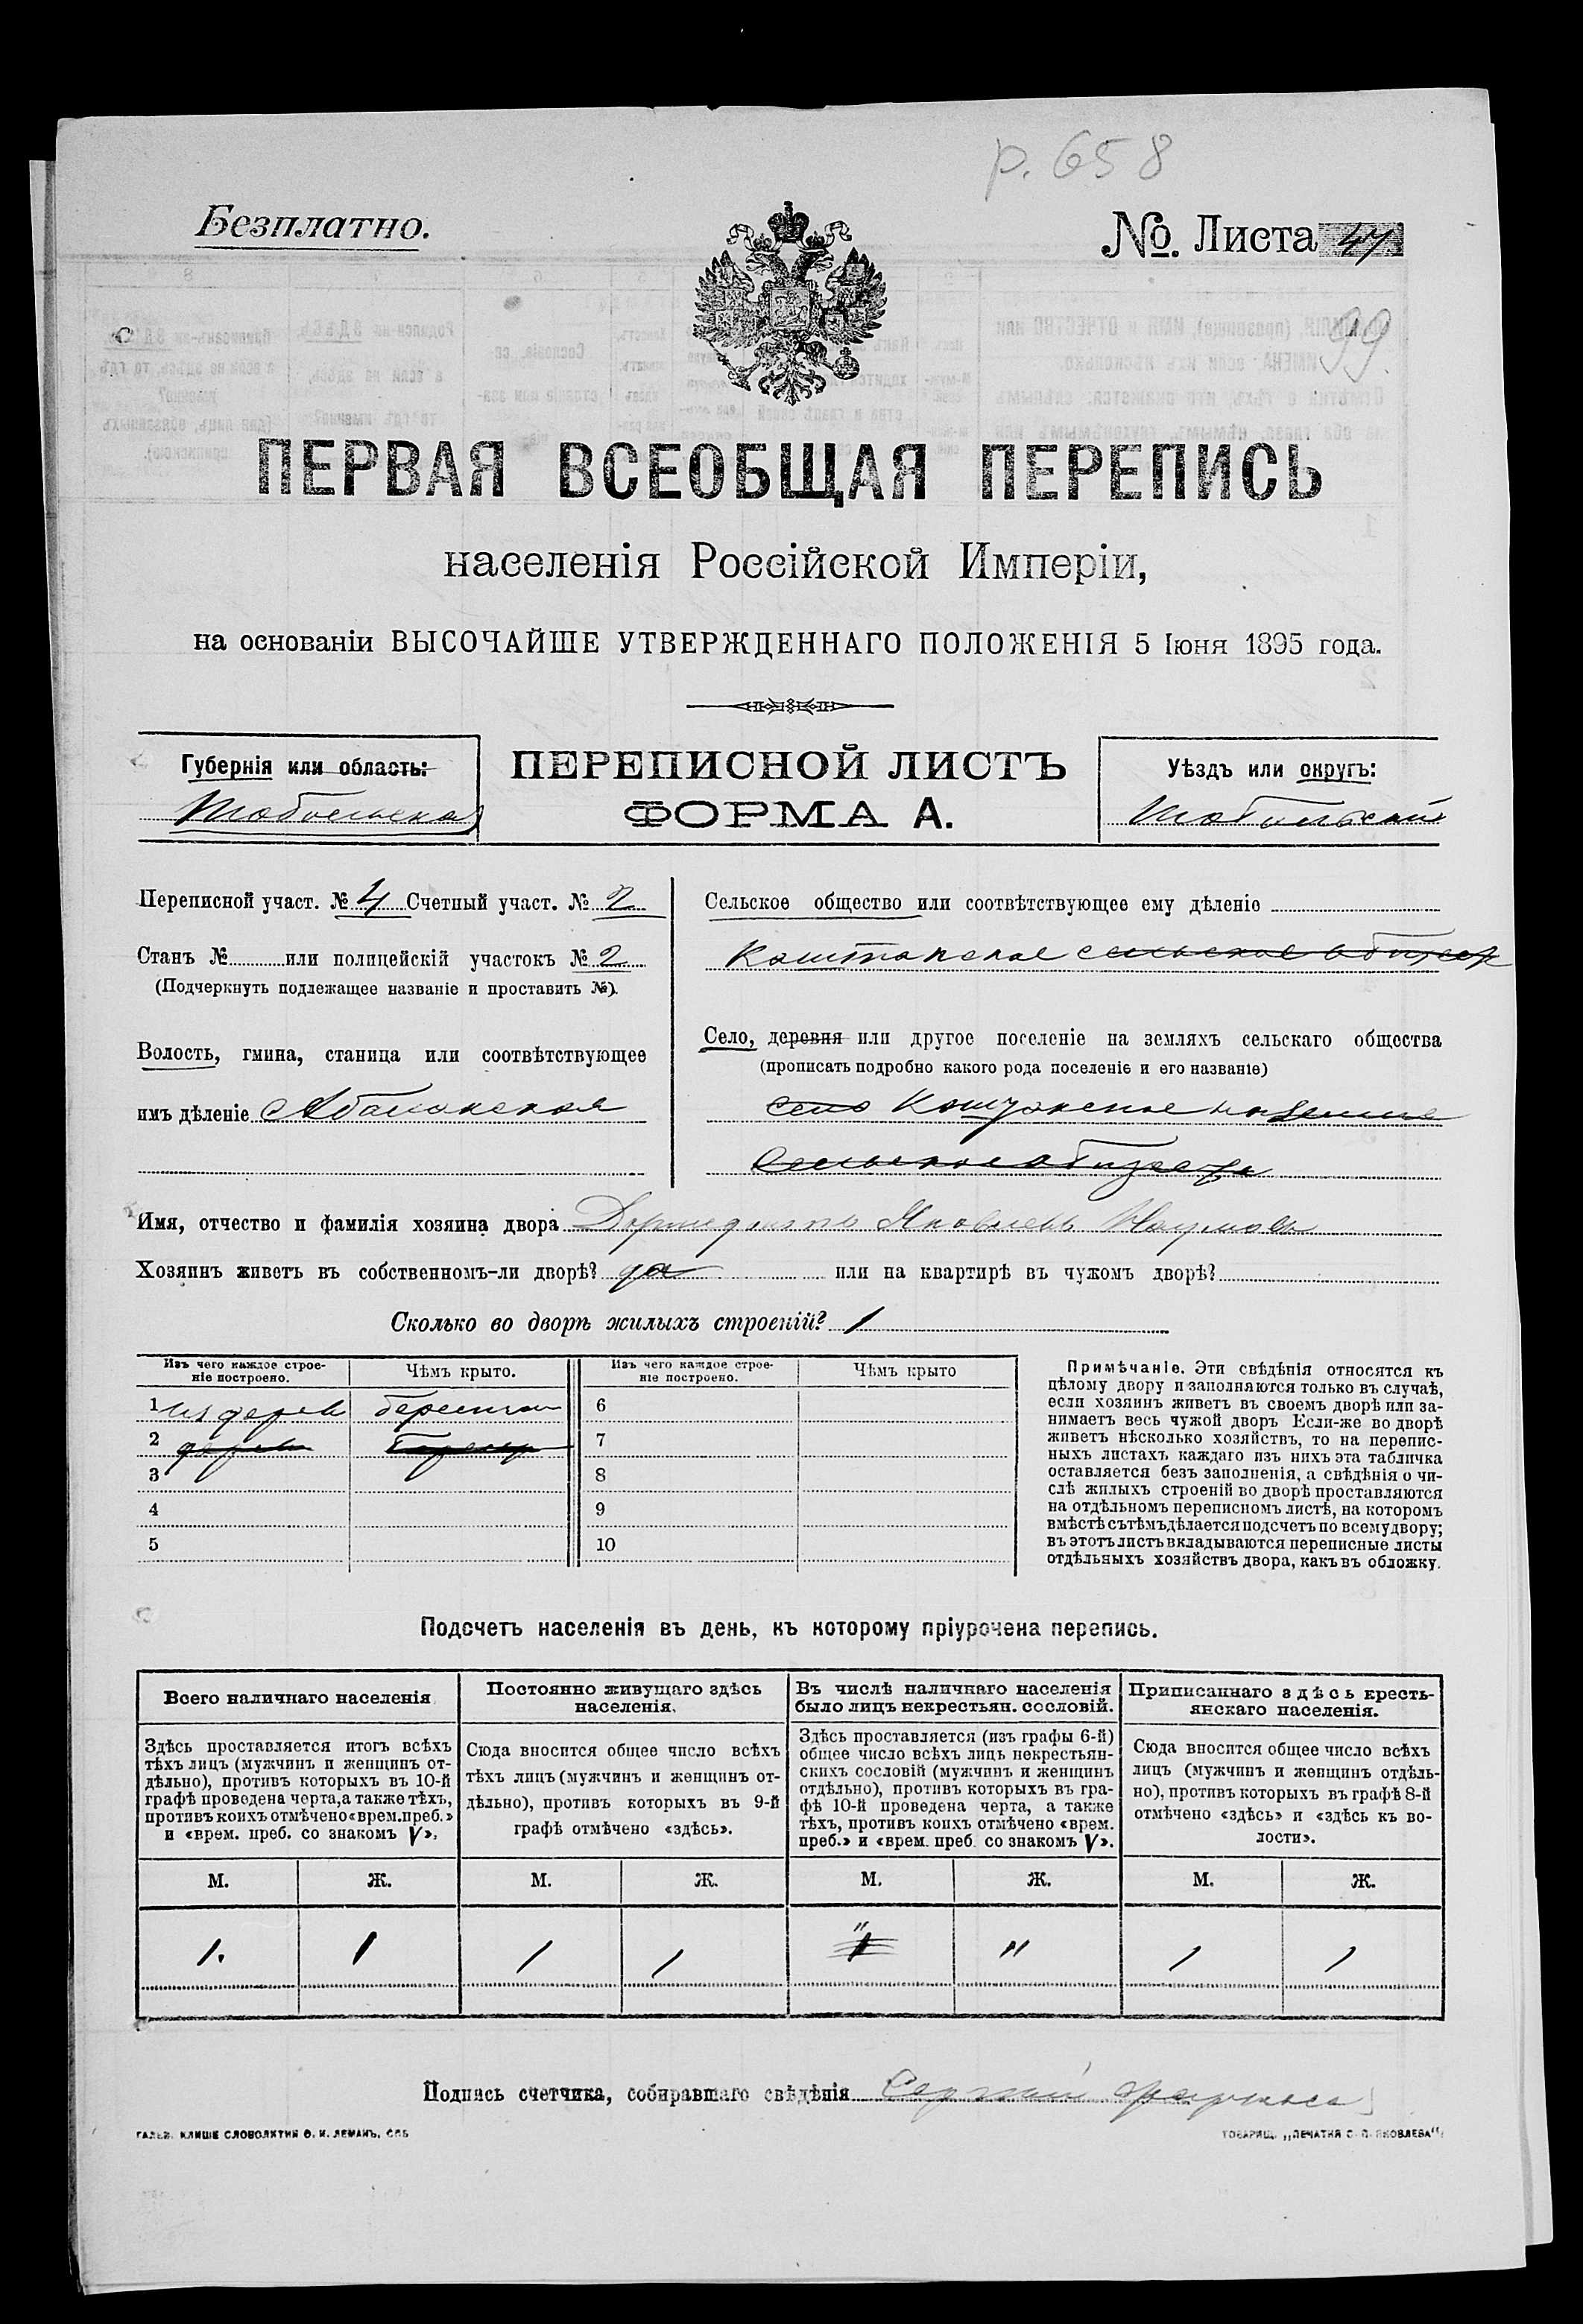 р. 658
Безплатно.
№. Листа 47
99.
ПЕРВАЯ ВСЕОБЩАЯ ПЕРЕПИСЬ
населенія Россійской Имперіи,
на основаніи ВЫСОЧАЙШЕ УТВЕРЖДЕННАГО ПОЛОЖЕНІЯ 5 Іюня 1895 года.
Губернія или область:
Тобольская
ПЕРЕПИСНОЙ ЛИСТЪ
ФОРМА А.
Уѣздъ или округъ:
Тобольскій
Переписной участ. № 4 Счетный участ. № 2
Станъ № или полицейскій участокъ № 2
(Подчеркнуть подлежащее названіе и проставить №).
Волость, гмина, станица или соотвѣтствующее
имъ дѣленіе Абалакская
Сельское общество или соотвѣтствующее ему дѣленіе
сельское общест
Село, деревня или другое поселеніе на земляхъ сельскаго общества
(прописать подробно какого рода поселеніе и его названіе)
село
сельское общества
Имя, отчество и фамилія хозяина двора Яковлевъ Наумовъ
Хозяинъ живетъ въ собственномъ-ли дворѣ? да или на квартирѣ въ чужомъ дворѣ?
Сколько во дворѣ жилыхъ строеній? 1
Изъ чего каждое строе-
ніе построено.
Чѣмъ крыто.
Изъ чего каждое строе-
ніе построено.
Чѣмъ крыто
1 из дерев
6
2 дерев
7
3
8
4
9
5
10
Примѣчаніе. Эти свѣдѣнія относятся къ
цѣлому двору и заполняются только въ случаѣ,
если хозяинъ живетъ въ своемъ дворѣ или за-
нимаетъ весь чужой дворъ Если-же во дворѣ
живетъ нѣсколько хозяйствъ, то на перепис-
ныхъ листахъ каждаго изъ нихъ эта табличка
оставляется безъ заполненія, а свѣдѣнія о чи-
слѣ жилыхъ строеній во дворѣ проставляются
на отдѣльномъ переписномъ листѣ, на которомъ
вмѣстѣ съ тѣмъ дѣлается подсчетъ по всему двору;
въ этотъ листъ вкладываются переписные листы
отдѣльныхъ хозяйствъ двора, какъ въ обложку.
Подсчетъ населенія въ день, къ которому пріурочена перепись.
Всего наличнаго населенія
Здѣсь проставляется итогъ всѣхъ
тѣхъ лицъ (мужчинъ и женщинъ от-
дѣльно), противъ которыхъ въ 10-й
графѣ проведена черта, а также тѣхъ,
противъ коихъ отмѣчено «врем. преб.»
и «врем. преб. со знакомъ V».
Постоянно живущаго здѣсь
населенія.
Сюда вносится общее число всѣхъ
тѣхъ лицъ (мужчинъ и женщинъ от-
дѣльно), противъ которыхъ въ 9-й
графѣ отмѣчено «здѣсь».
Въ числѣ наличнаго населенія
было лицъ некрестьян. сословій.
Здѣсь проставляется (изъ графы 6-й)
общее число всѣхъ лицъ некрестьян-
скихъ сословій (мужчинъ и женщинъ
отдѣльно), противъ которыхъ въ гра-
фѣ 10-й проведена черта, а также
тѣхъ, противъ коихъ отмѣчено «врем.
преб.» и «врем. преб. со знакомъ V».
Приписаннаго здѣсь кресть-
янскаго населенія.
Сюда вносится общее число всѣхъ
лицъ (мужчинъ и женщинъ отдѣль-
но), противъ которыхъ въ графѣ 8-й
отмѣчено «здѣсь» и «здѣсь къ во-
лости».
М. Ж. М. Ж. М. Ж. М. Ж.
1. 1 1 1 " " 1 1
Подпись счетчика, собиравшаго свѣдѣнія Сергѣй
ГАЛЬВ. КЛИШЕ СЛОВОЛИТНИ О. И. ЛЕМАНЪ, СПБ
ТОВАРИЩ. „ПЕЧАТНЯ С. П. ЯКОВЛЕВА"